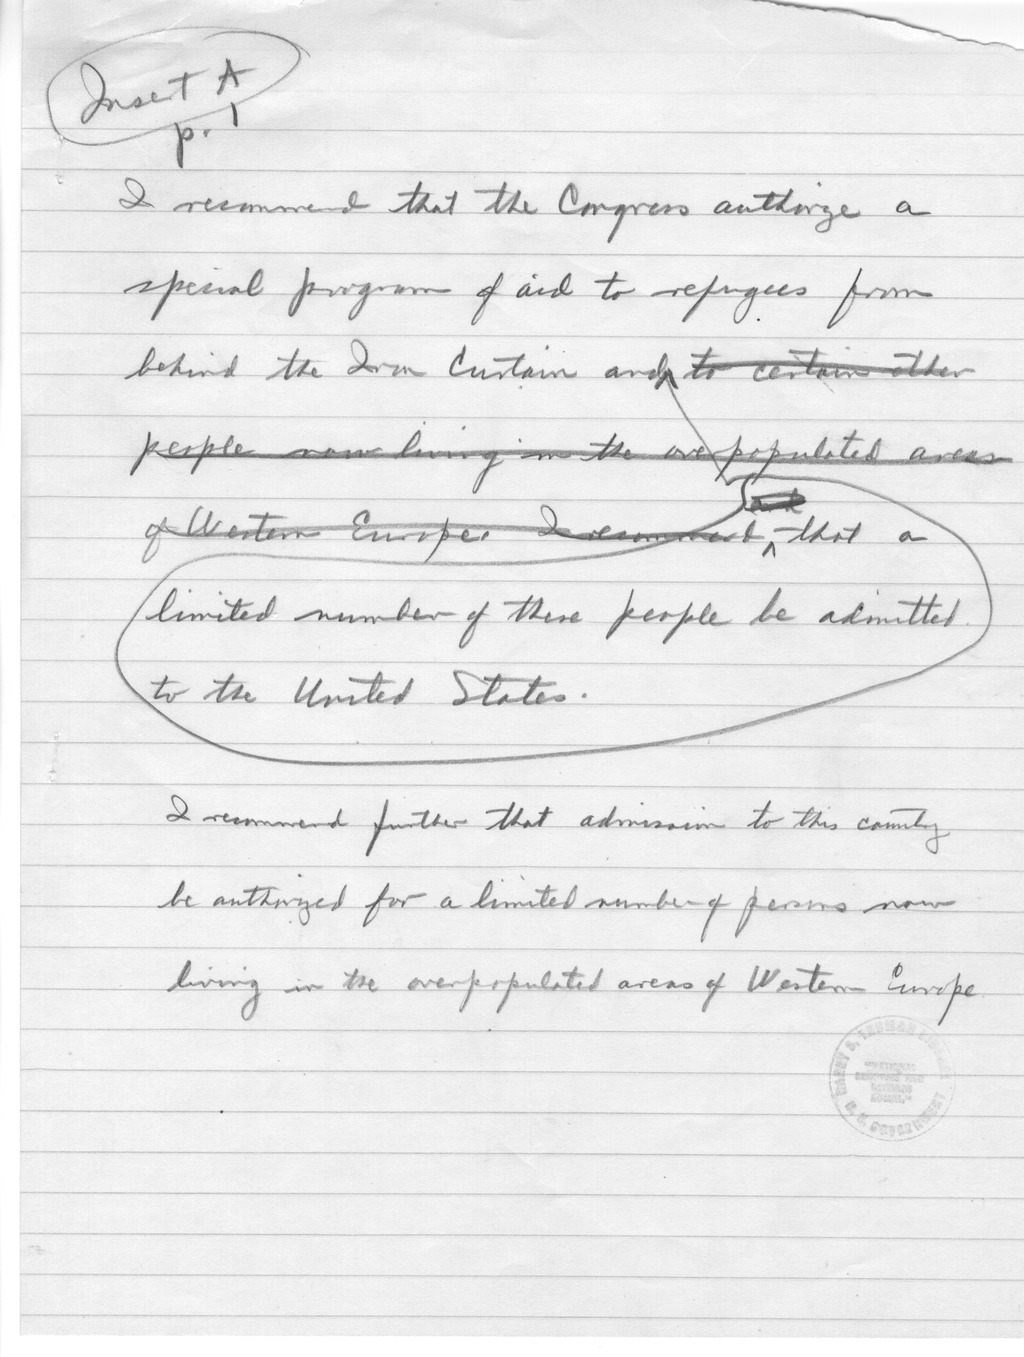 Insert A
p. 1
I recommend that the Congress authorize a
special program of aid to refugees from
behind the Iron Curtain and to certain other
people now living in the overpopulated areas
and
of Western Europe. I recommend that a
limited number of these people be admitted
to the United States.
I recommend further that admission to this country
be authorized for a limited number of persons now
living in the overpopulated areas of Western Europe
HARRY S. TRUMAN LIBRARY
"NATIONAL
ARCHIVES AND
RECORDS
ADMIN."
U. S. GOVERNMENT